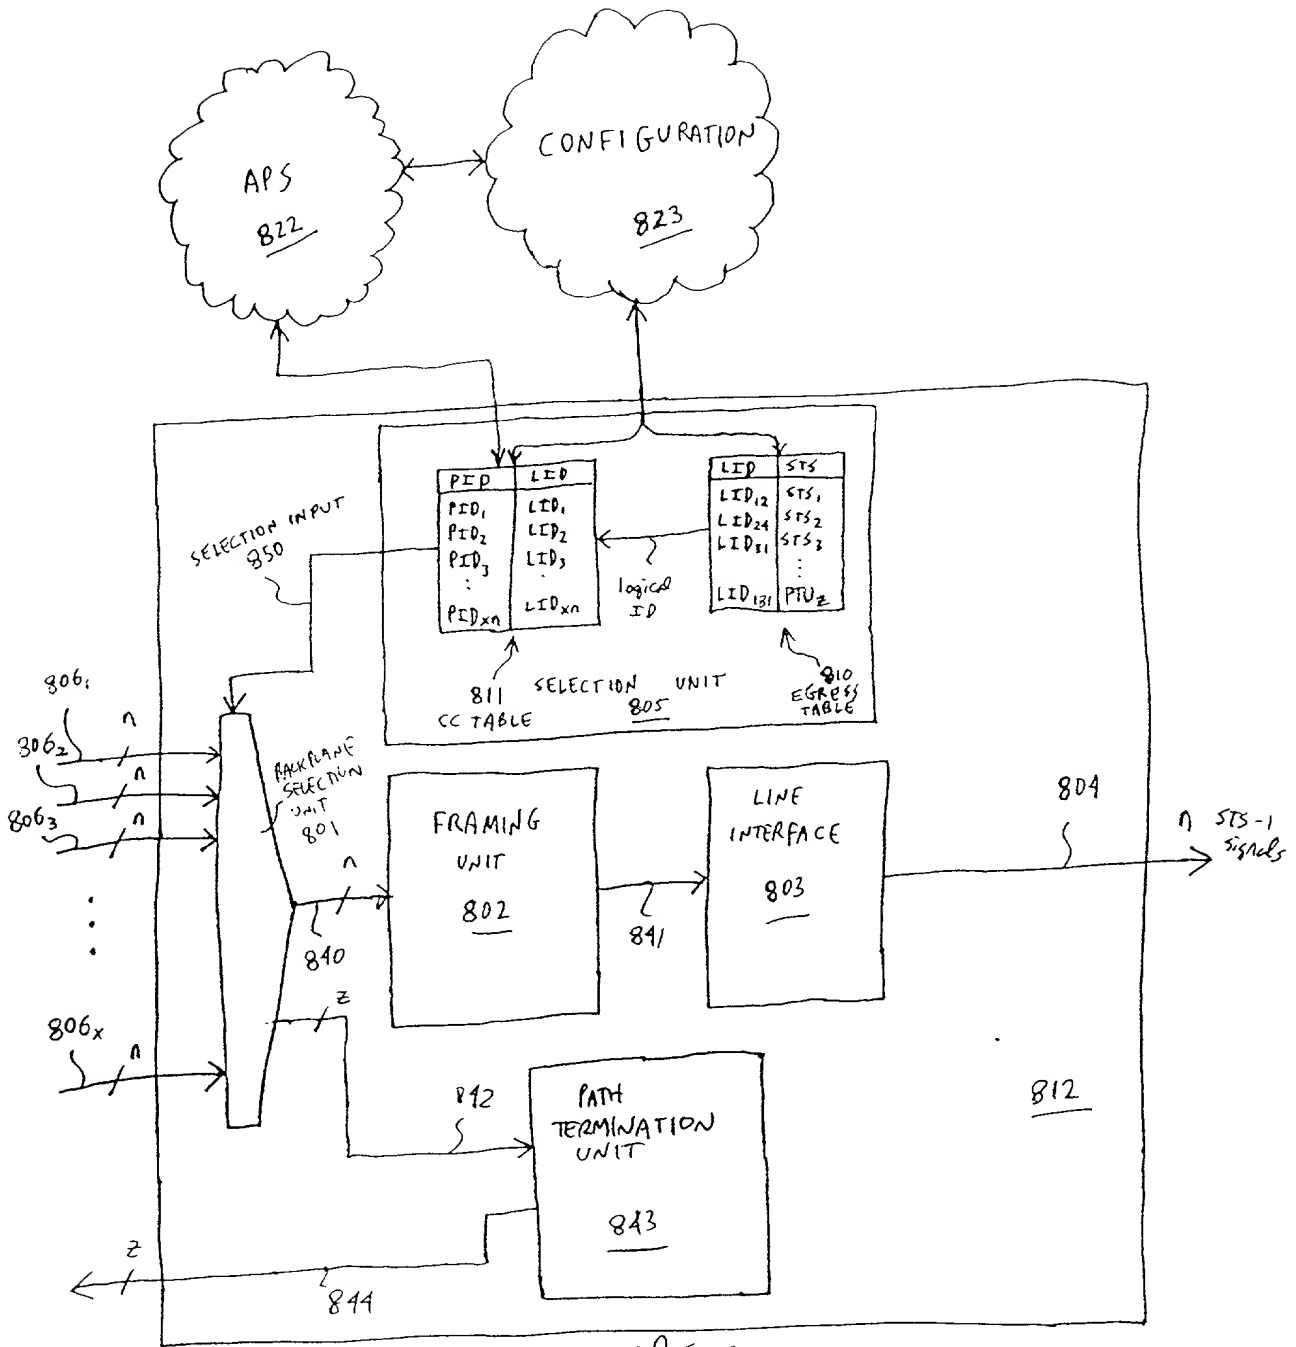 CONFIGURATION
823
APS
822
SELECTION INPUT
850
PID LID
PID1 LID1
PID2 LID2
PID3 LID3
: .
PIDxn LIDxn
logical
ID
LID STS
LID12 STS1
LID24 STS2
LID31 STS3
⋮
LID131 PTUz
811
SC TABLE
SELECTION UNIT
805
810
EGRESS
TABLE
8061
n
8062
n
8063
n
806x
n
BACKPLANE
SELECTION
UNIT
801
n
840
FRAMING
UNIT
802
841
LINE
INTERFACE
803
804
n STS-1
signals
z
842
PATH
TERMINATION
UNIT
843
812
z
844